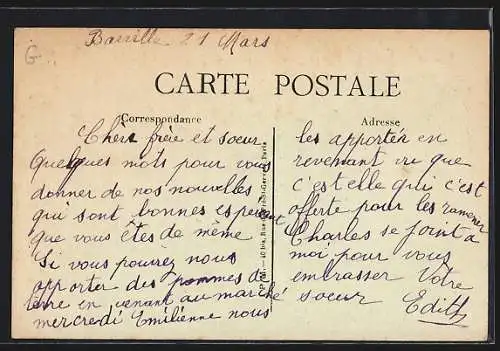 21 Mars
CARTE POSTALE
Correspondance
Chers frère et soeur
Quelques mots pour vous
donner de nos nouvelles
qui sont bonnes esperent
que vous êtes de même
Si vous pouvrez nous
apporter des pommes de
terre en venant au marché
mercredi Emilienne nous
Adresse
les apporter en
revenant vu que
c'est elle qui c'est
offerte pour les ramener
Charles se joint a
moi pour vous
embrasser Votre
soeur Edith